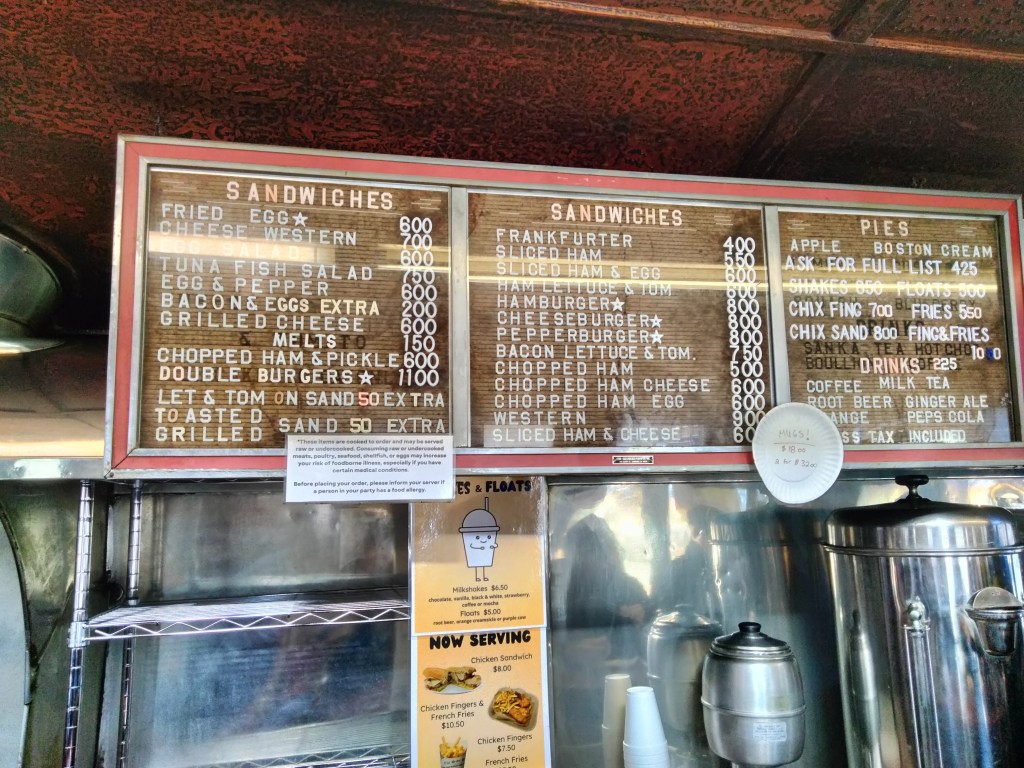 SANDWICHES
FRIED EGG★ 600
CHEESE WESTERN 700
EGG SALAD 600
TUNA FISH SALAD 750
EGG & PEPPER 600
BACON & EGGS EXTRA 200
GRILLED CHEESE 600
& MELTS 150
CHOPPED HAM & PICKLE 600
DOUBLE BURGERS★ 1100
LET & TOM ON SAND 50 EXTRA
TOASTED
GRILLED SAND 50 EXTRA
SANDWICHES
FRANKFURTER 400
SLICED HAM 550
SLICED HAM & EGG
HAM LETTUCE & TOM
HAMBURGER★
CHEESEBURGER★
PEPPERBURGER★
BACON LETTUCE & TOM. 750
CHOPPED HAM 500
CHOPPED HAM CHEESE 600
CHOPPED HAM EGG 600
WESTERN
SLICED HAM & CHEESE
PIES
APPLE BOSTON CREAM
ASK FOR FULL LIST 425
SHAKES 650 FLOATS
CHIX FING 700 FRIES 550
CHIX SAND 800 FING&FRIES
SANKA TEA
DRINKS 225
COFFEE MILK TEA
ROOT BEER GINGER ALE
PEPS COLA
TAX INCLUDED
MUGS!
$18.00
2 for $32.00
*These items are cooked to order and may be served
raw or undercooked. Consuming raw or undercooked
meats, poultry, seafood, shellfish, or eggs may increase
your risk of foodborne illness, especially if you have
certain medical conditions.
Before placing your order, please inform your server if
a person in your party has a food allergy.
& FLOATS
Milkshakes $6.50
chocolate, vanilla, black & white, strawberry,
coffee or mocha
Floats $5.00
root beer, orange creamsicle or purple cow
NOW SERVING
Chicken Sandwich
$8.00
Chicken Fingers &
French Fries
$10.50
Chicken Fingers
$7.50
French Fries